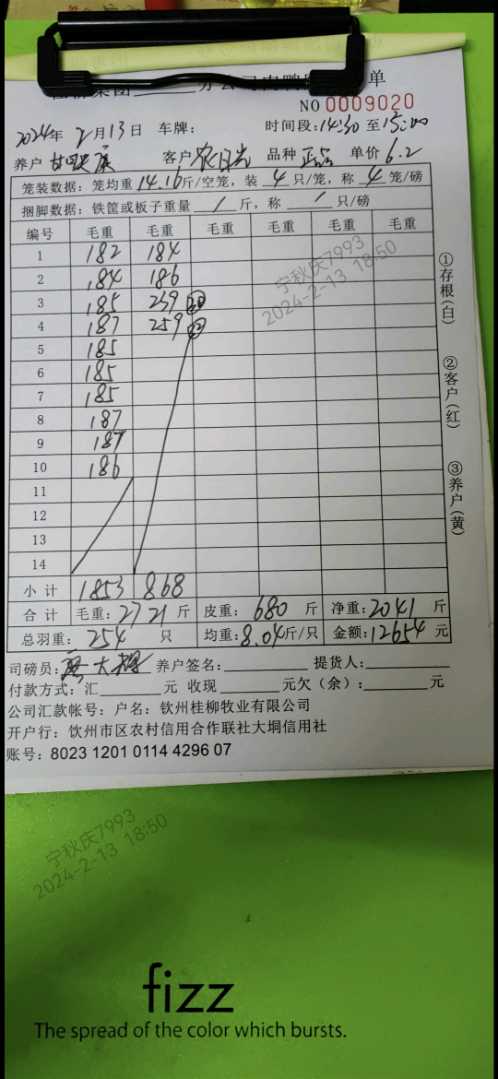 单
NO 0009020
2024年 2月13日 车牌: 时间段:14:30 至15:00
养户 客户 农日光 品种 正品 单价 6.2
笼装数据: 笼均重 14.16斤/空笼, 装 4 只/笼, 称 4 笼/磅
捆脚数据: 铁筐或板子重量 / 斤, 称 / 只/磅
编号 毛重 毛重 毛重 毛重 毛重 毛重
1 182 184
2 184 186
3 185 239
4 187 259
5 185
6 185
7 185
8 187
9 187
10 186
11
12
13
14
小计 1853 868
合计 毛重: 2721 斤 皮重: 680 斤 净重: 2041 斤
总羽重: 254 只 均重: 8.04斤/只 金额: 12654 元
司磅员: 养户签名: 提货人:
付款方式: 汇 元 收现 元欠(余): 元
公司汇款帐号: 户名: 钦州桂柳牧业有限公司
开户行: 饮州市区农村信用合作联社大垌信用社
账号: 8023 1201 0114 4296 07
①存根(白)
②客户(红)
③养户(黄)
宁秋庆7993
2024-2-13 18:50
宁秋庆7993
2024-2-13 18:50
fizz
The spread of the color which bursts.